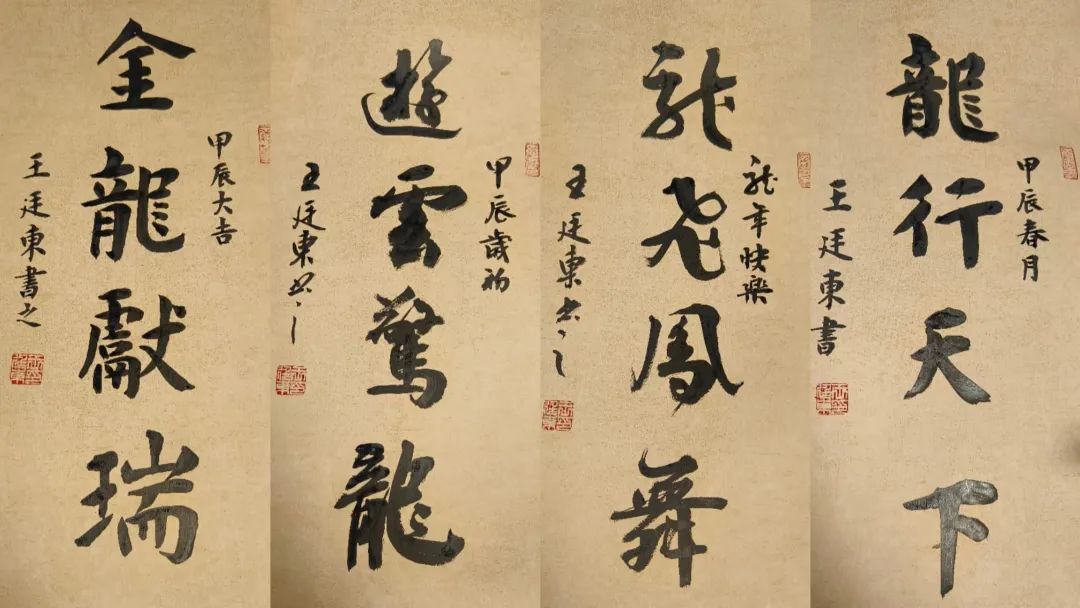 龍行天下
甲辰春月
王廷東書
龍飛鳳舞
龍年快樂
王廷東書之
遊雲驚龍
甲辰歲初
王廷東書之
金龍獻瑞
甲辰大吉
王廷東書之